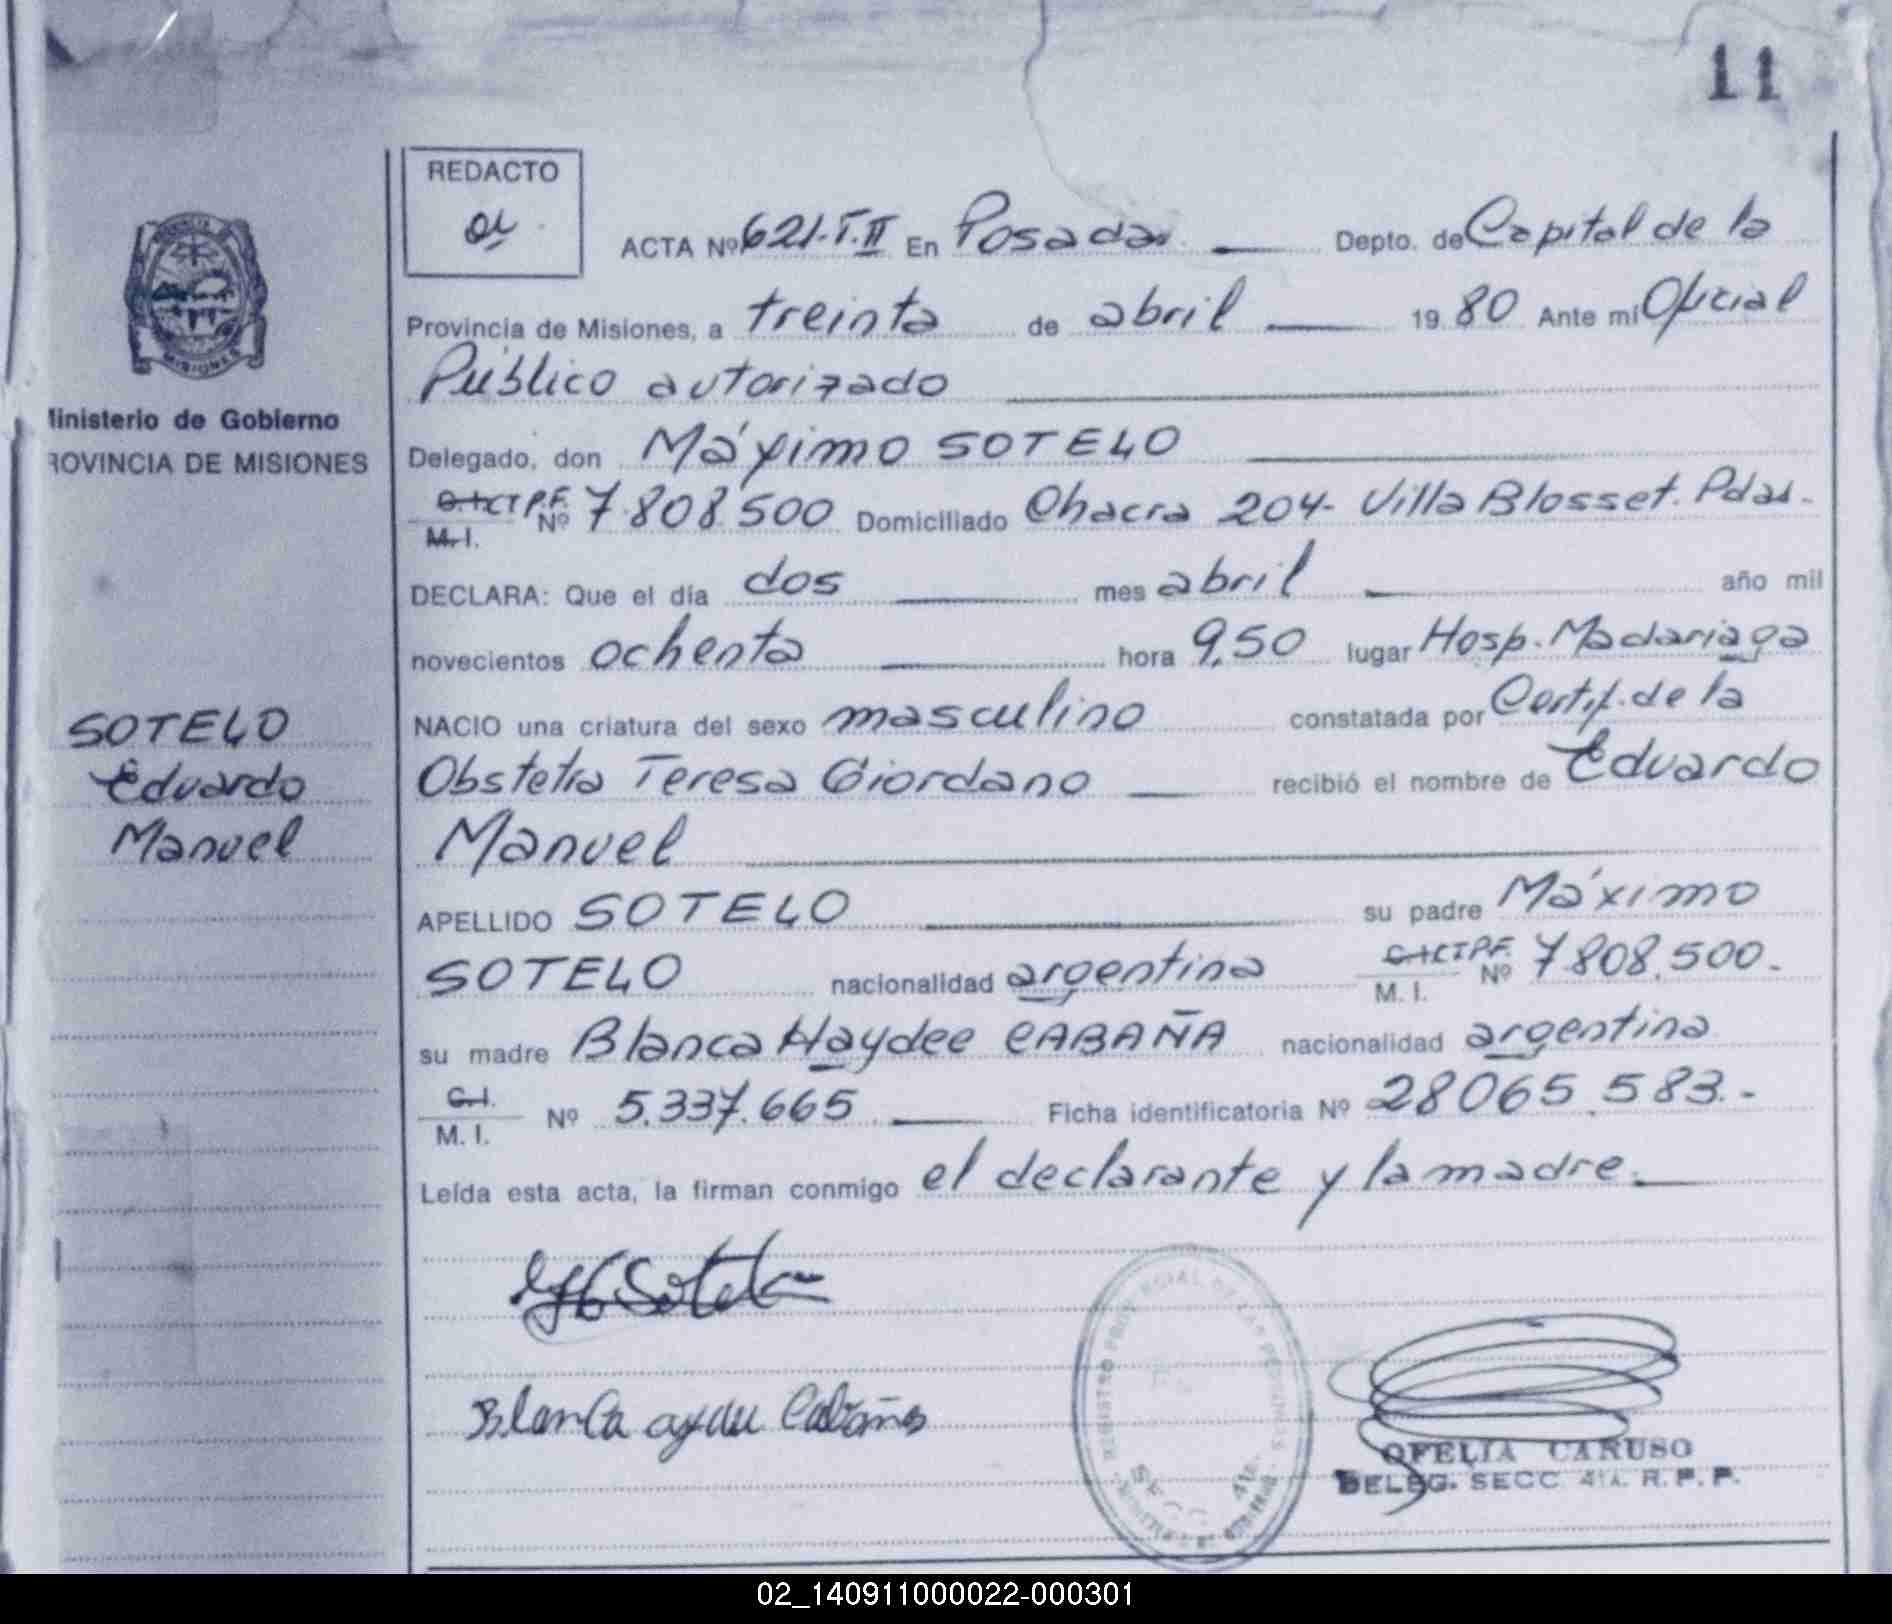 11
REDACTO
ACTA Nº 621-T.II En Posadas Depto. de Capital de la
Provincia de Misiones, a treinta de abril 19 80 Ante mi Oficial
Público autorizado
Ministerio de Gobierno
PROVINCIA DE MISIONES
Delegado, don Máximo SOTELO
C.I. C.I.P.F. M. I. Nº 7.808.500 Domiciliado Chacra 204- Villa Blosset. Pdas.
DECLARA: Que el día dos mes abril año mil
novecientos ochenta hora 9,50 lugar Hosp. Madariaga
NACIO una criatura del sexo masculino constatada por Certif. de la
Obstetra Teresa Giordano recibió el nombre de Eduardo
Manuel
SOTELO
Eduardo
Manuel
APELLIDO SOTELO su padre Máximo
SOTELO nacionalidad argentina C.I. C.I.P.F. M. I. Nº 7.808.500.-
su madre Blanca Haydee CABAÑA nacionalidad argentina
C.I. M. I. Nº 5.337.665 Ficha identificatoria Nº 28065.583.-
Leída esta acta, la firman conmigo el declarante y la madre.
Sotelo
Blanca Cabaña
REGISTRO PROVINCIAL DE LAS PERSONAS
SECC. 4ta.
MISIONES
OFELIA CARUSO
DELEG. SECC 4ta. R. P. P.
02_140911000022-000301